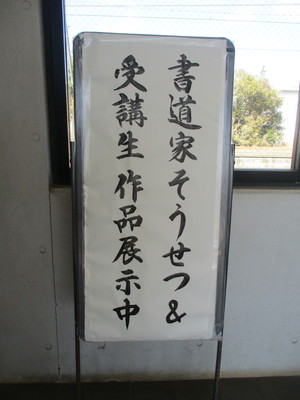 書道家そうせつ&
受講生 作品展示中